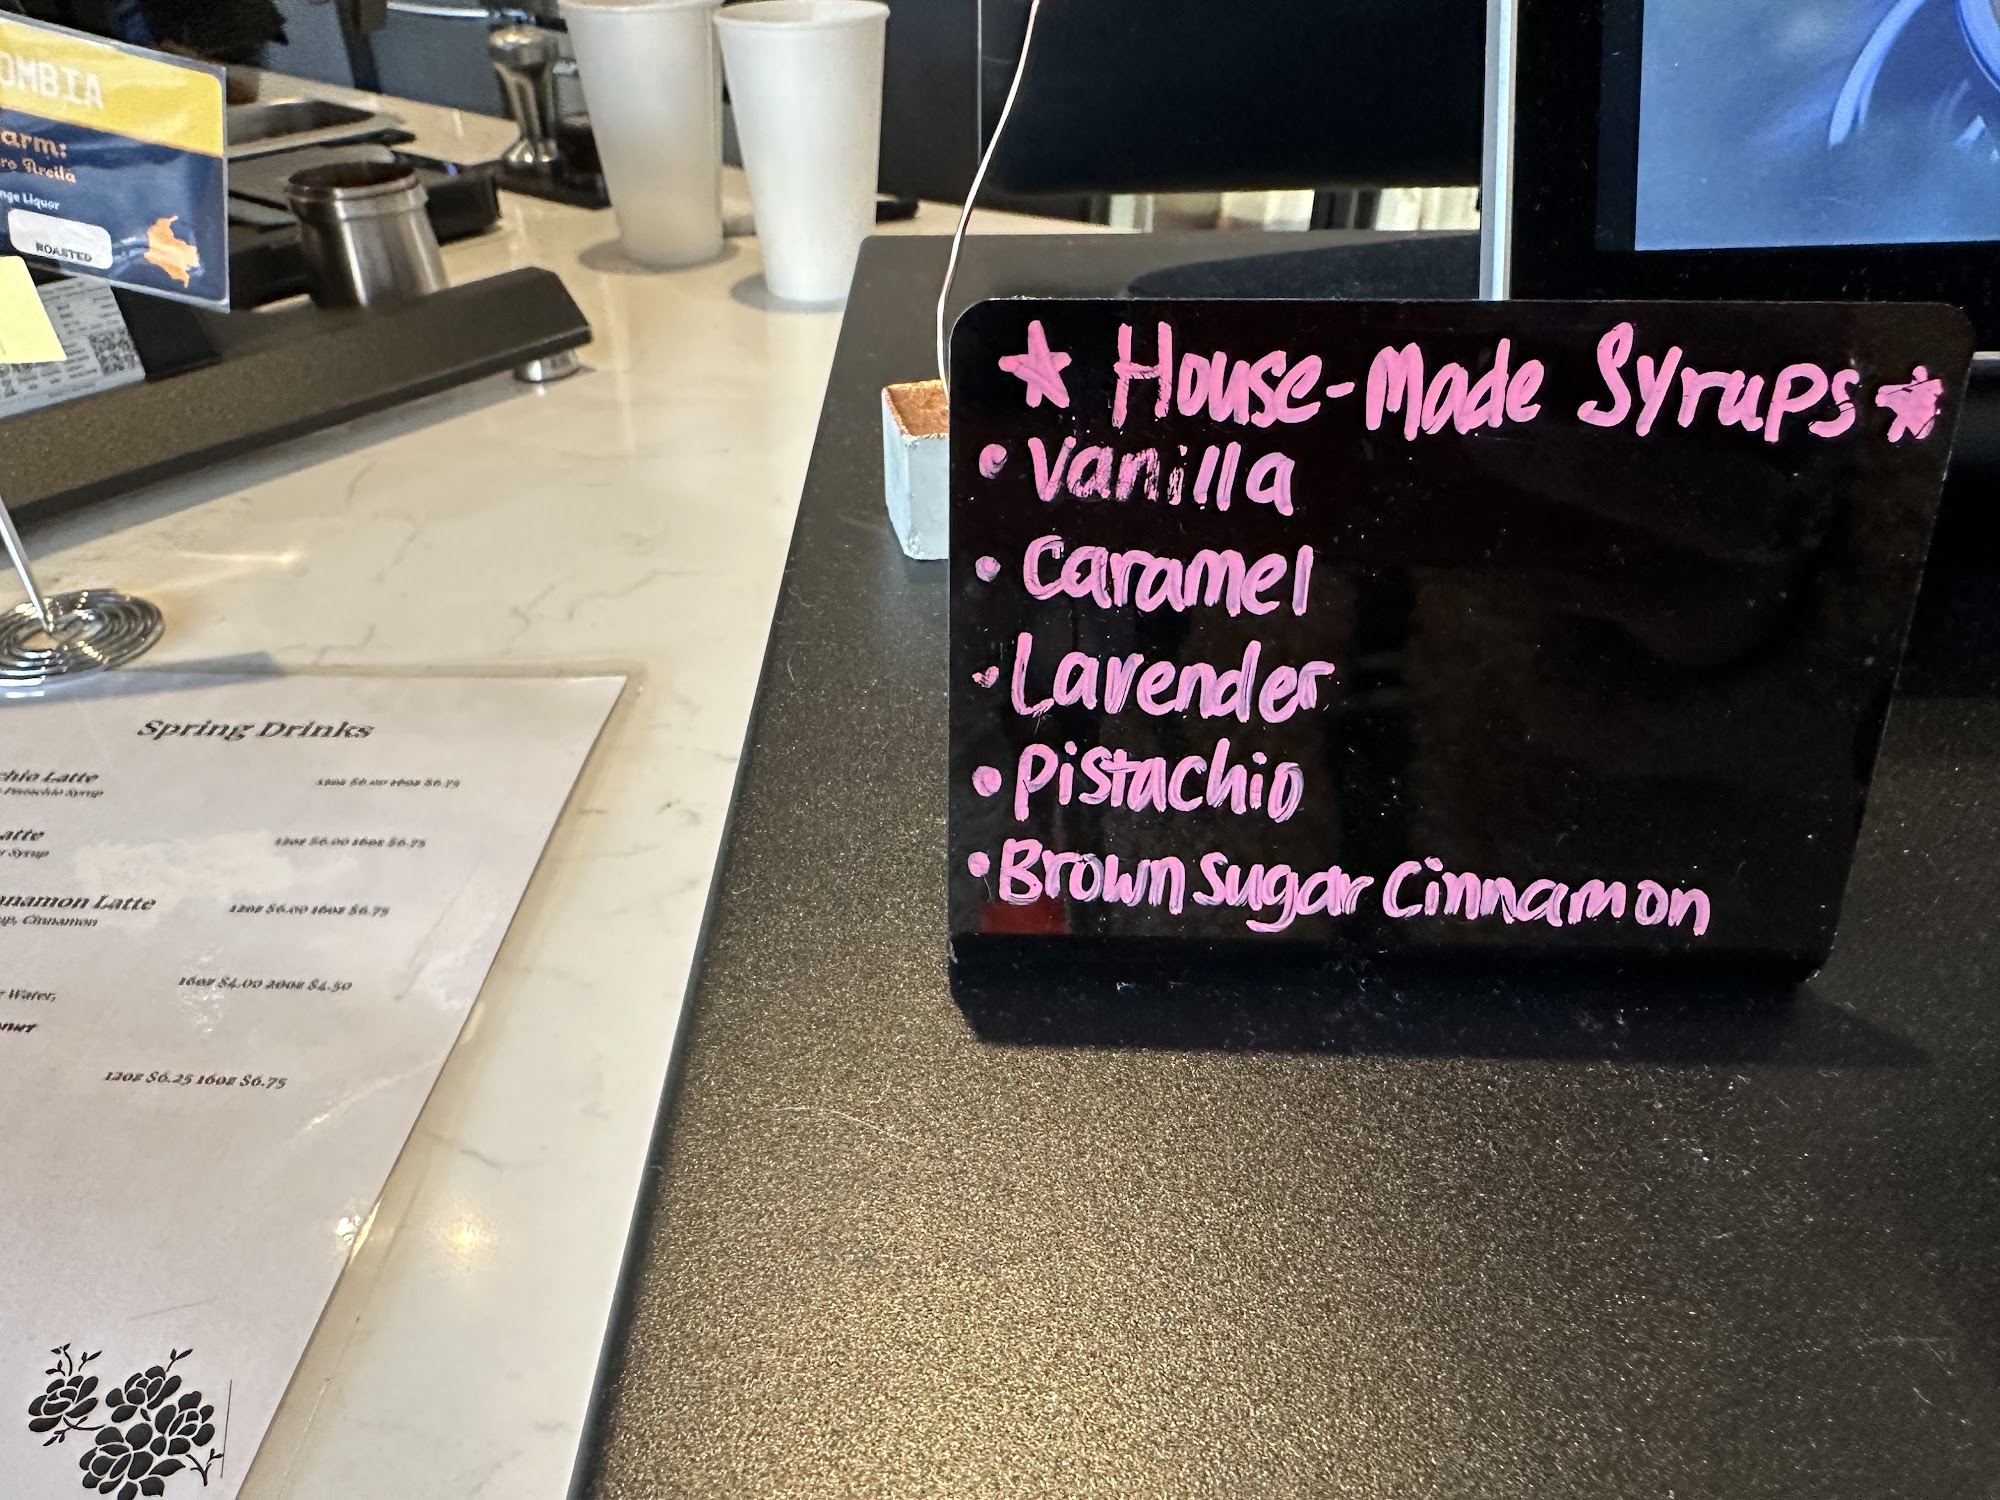 OMBIA
arm:
ro Areila
nge Liquor
ROASTED
★ House-Made Syrups ★
• Vanilla
• Caramel
• Lavender
• Pistachio
• Brown Sugar Cinnamon
Spring Drinks
chio Latte 12oz $6.00 16oz $6.75
Pistachio Syrup
atte 12oz $6.00 16oz $6.75
r Syrup
nnamon Latte 12oz $6.00 16oz $6.75
up, Cinnamon
16oz $4.00 20oz $4.50
r Water,
12oz $6.25 16oz $6.75